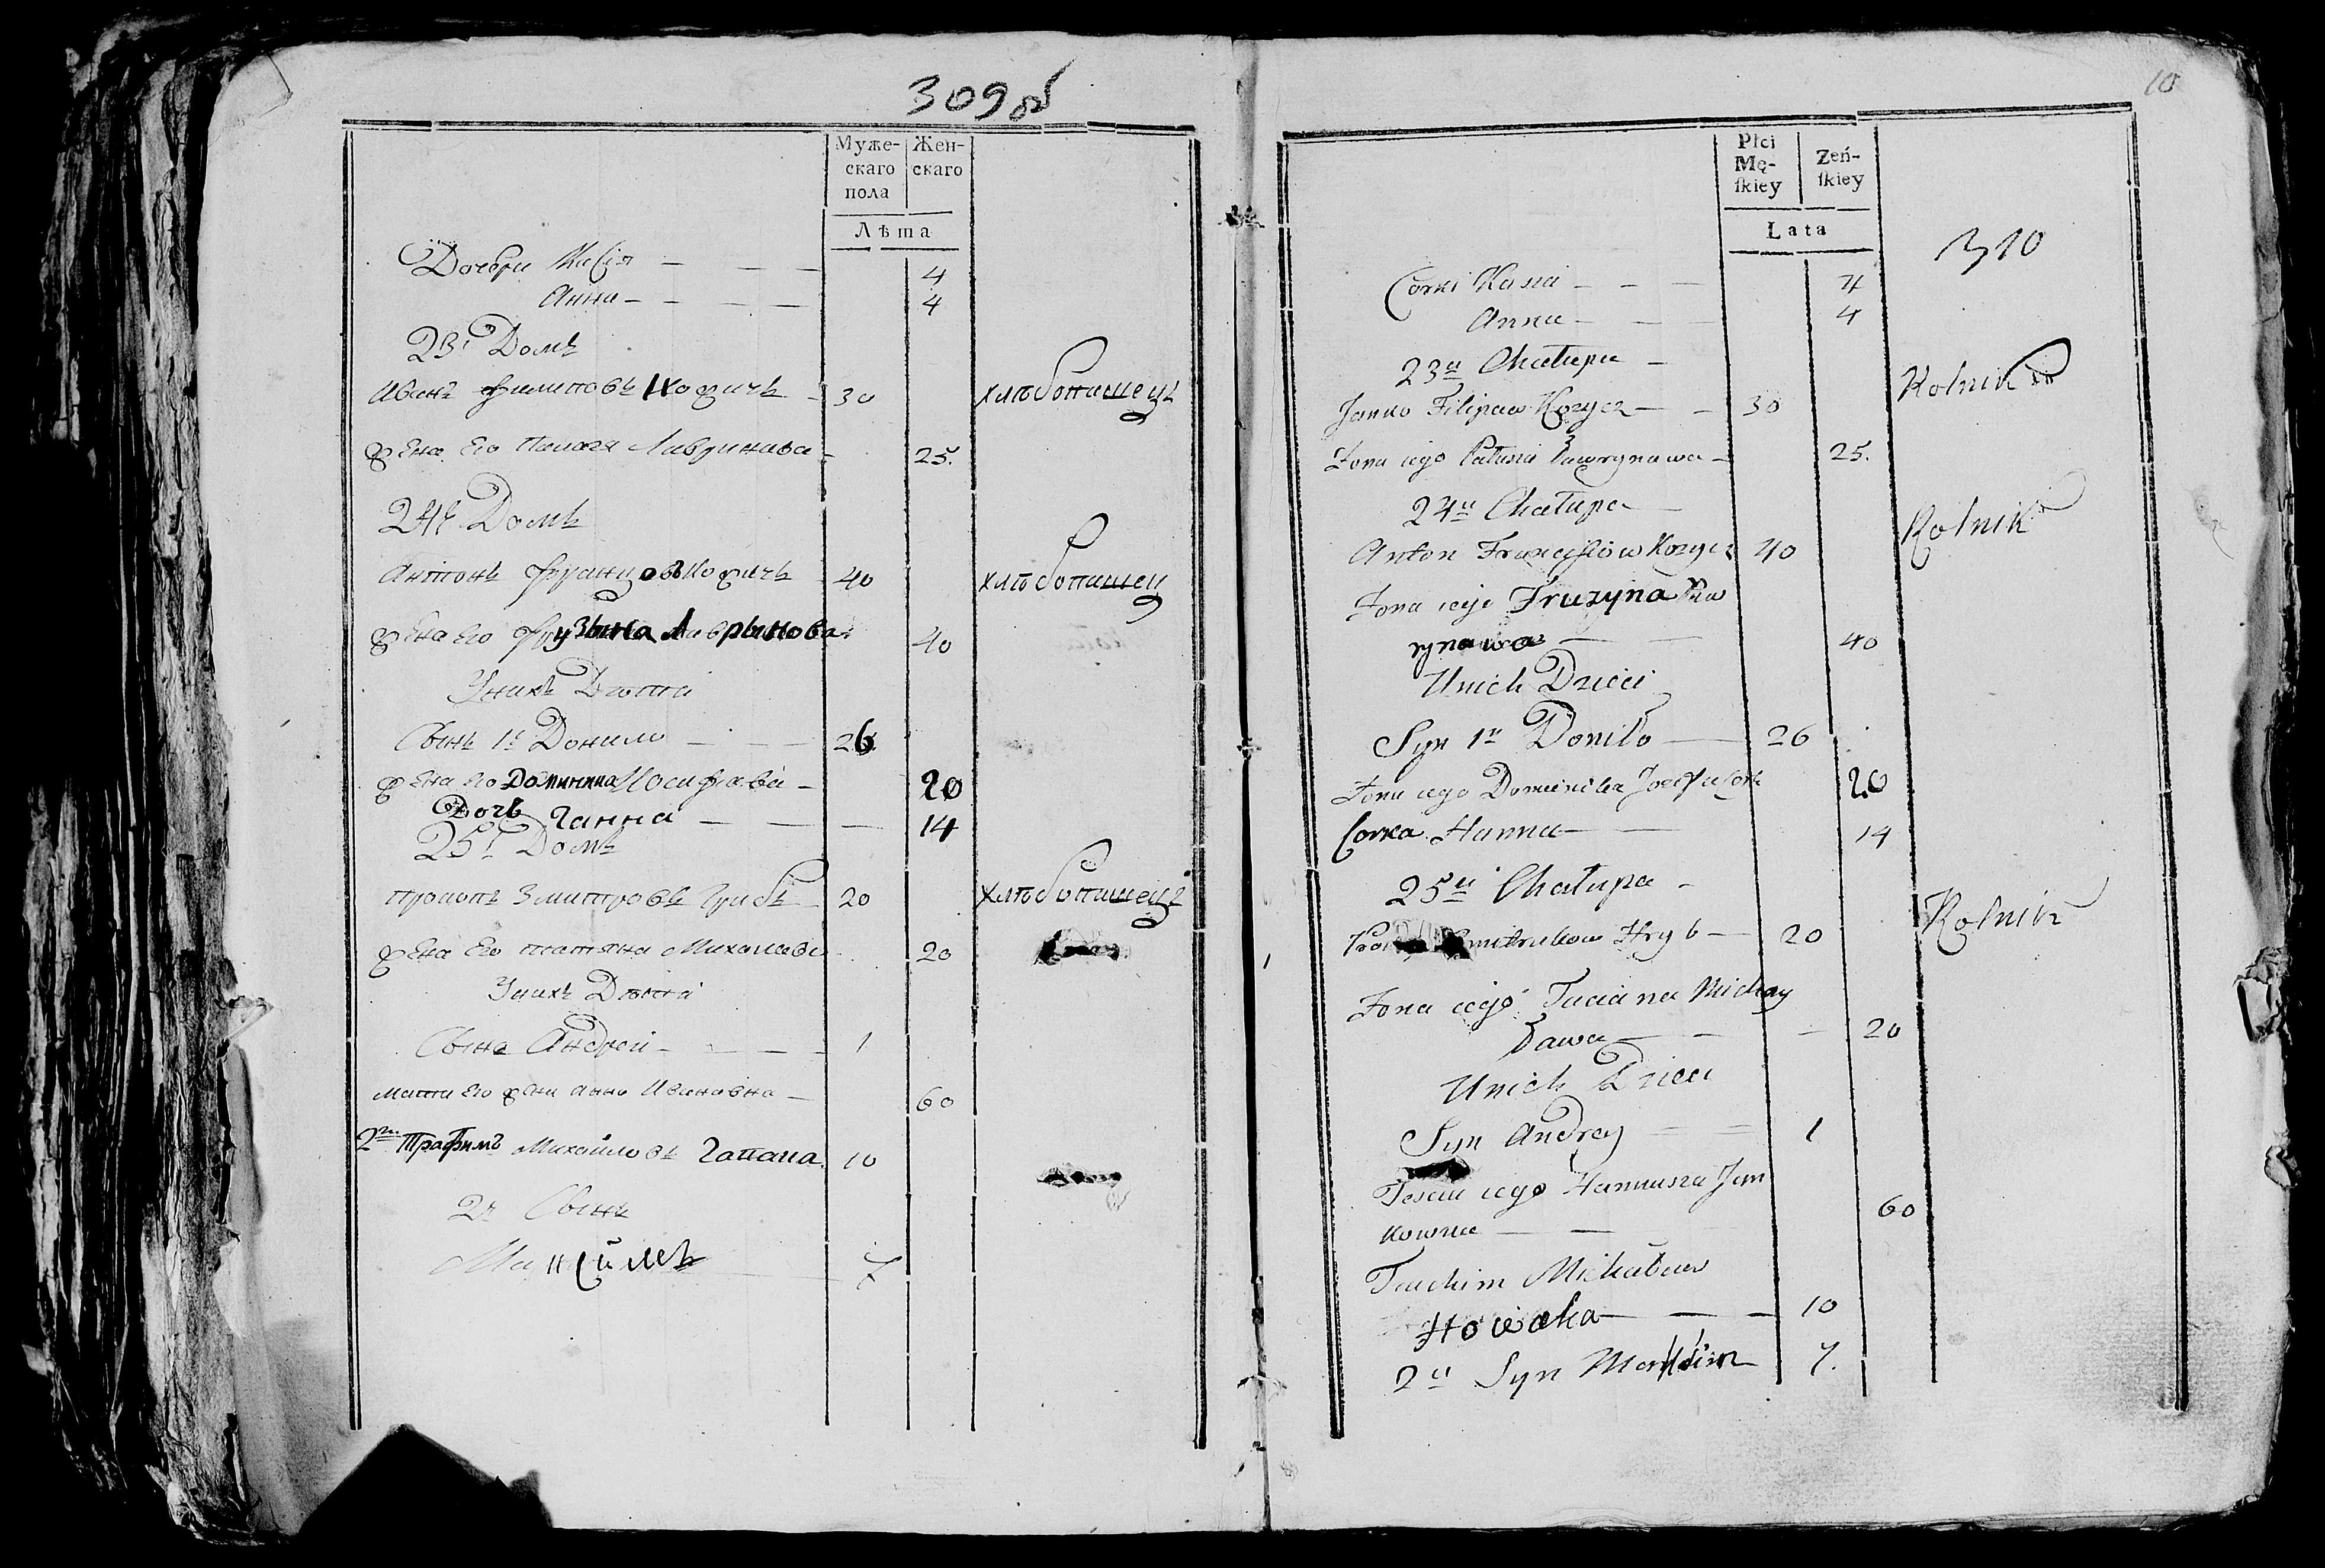 309 об
Муже-
скаго
пола
Жен-
скаго
Лѣта
Дочери Касія — — — 4
Анна — — — — 4
23й Домъ
Иванъ Филиповъ Козичъ — 30 хлѣбопашецъ
жена Его Палагя Лавринава — 25.
24й Домъ
Антонъ Францовъ Козичъ 40 хлѣбопашец
жена Его Фрузына Лаврынова 40
Унихъ Дѣти
Сынъ 1й Донило — — — 26
жена его Доминика Иосифава — 20
Дочь Ганна — — — 14
25й Домъ
Прокопъ Змитровъ Грибъ — 20 Хлѣбопашецъ
жена Его татяна Михалова 20
Унихъ Дѣти
Сына Андрей — — — 1
мати Его жени анна Ивановна — 60
2й Трафимъ Михайловъ Гапака 10
2й Сынъ
7
10
Płci
Mę-
ſkiey
Zeń-
ſkiey
Lata
310
Corki Kasia — — — 4
Anna — — — 4
23a Chałupa —
Janko Filipaw Kozycz — — 30 Rolnik
Żona iego Pałusia Ławrynawa — 25.
24a Chałupa —
Anton Franciſzkow Kozycz 40 Rolnik
Żona iego Fruzyna Ław
rynawa — — 40
Unich Dzieci
Syn 1n Daniło — 26
Żona iego Dominika Jozefu 20
Corka Hanna — — 14
25a Chałupa —
Hryb — 20 Rolnik
Żona iego Taciana Michay
ławа — — — 20
Unich Dzieci
Syn Andrey — — 1
iego Hannusza Jan
kowna — — 60
Michaław
— — — 10
2n Syn 7.